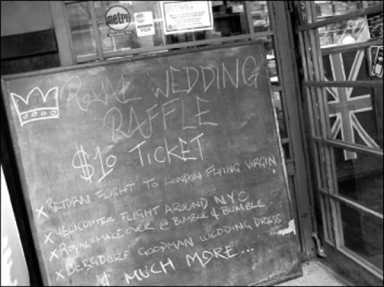 metro
Royal WEDDING
RAFFLE
$10 TICKET
x RETURN FLIGHT TO LONDON FLYING VIRGIN
x HELICOPTER FLIGHT AROUND NYC
x ROYAL MAKEOVER @ BUMBLE & BUMBLE
x BERGDORF GOODMAN WEDDING DRESS
& MUCH MORE...